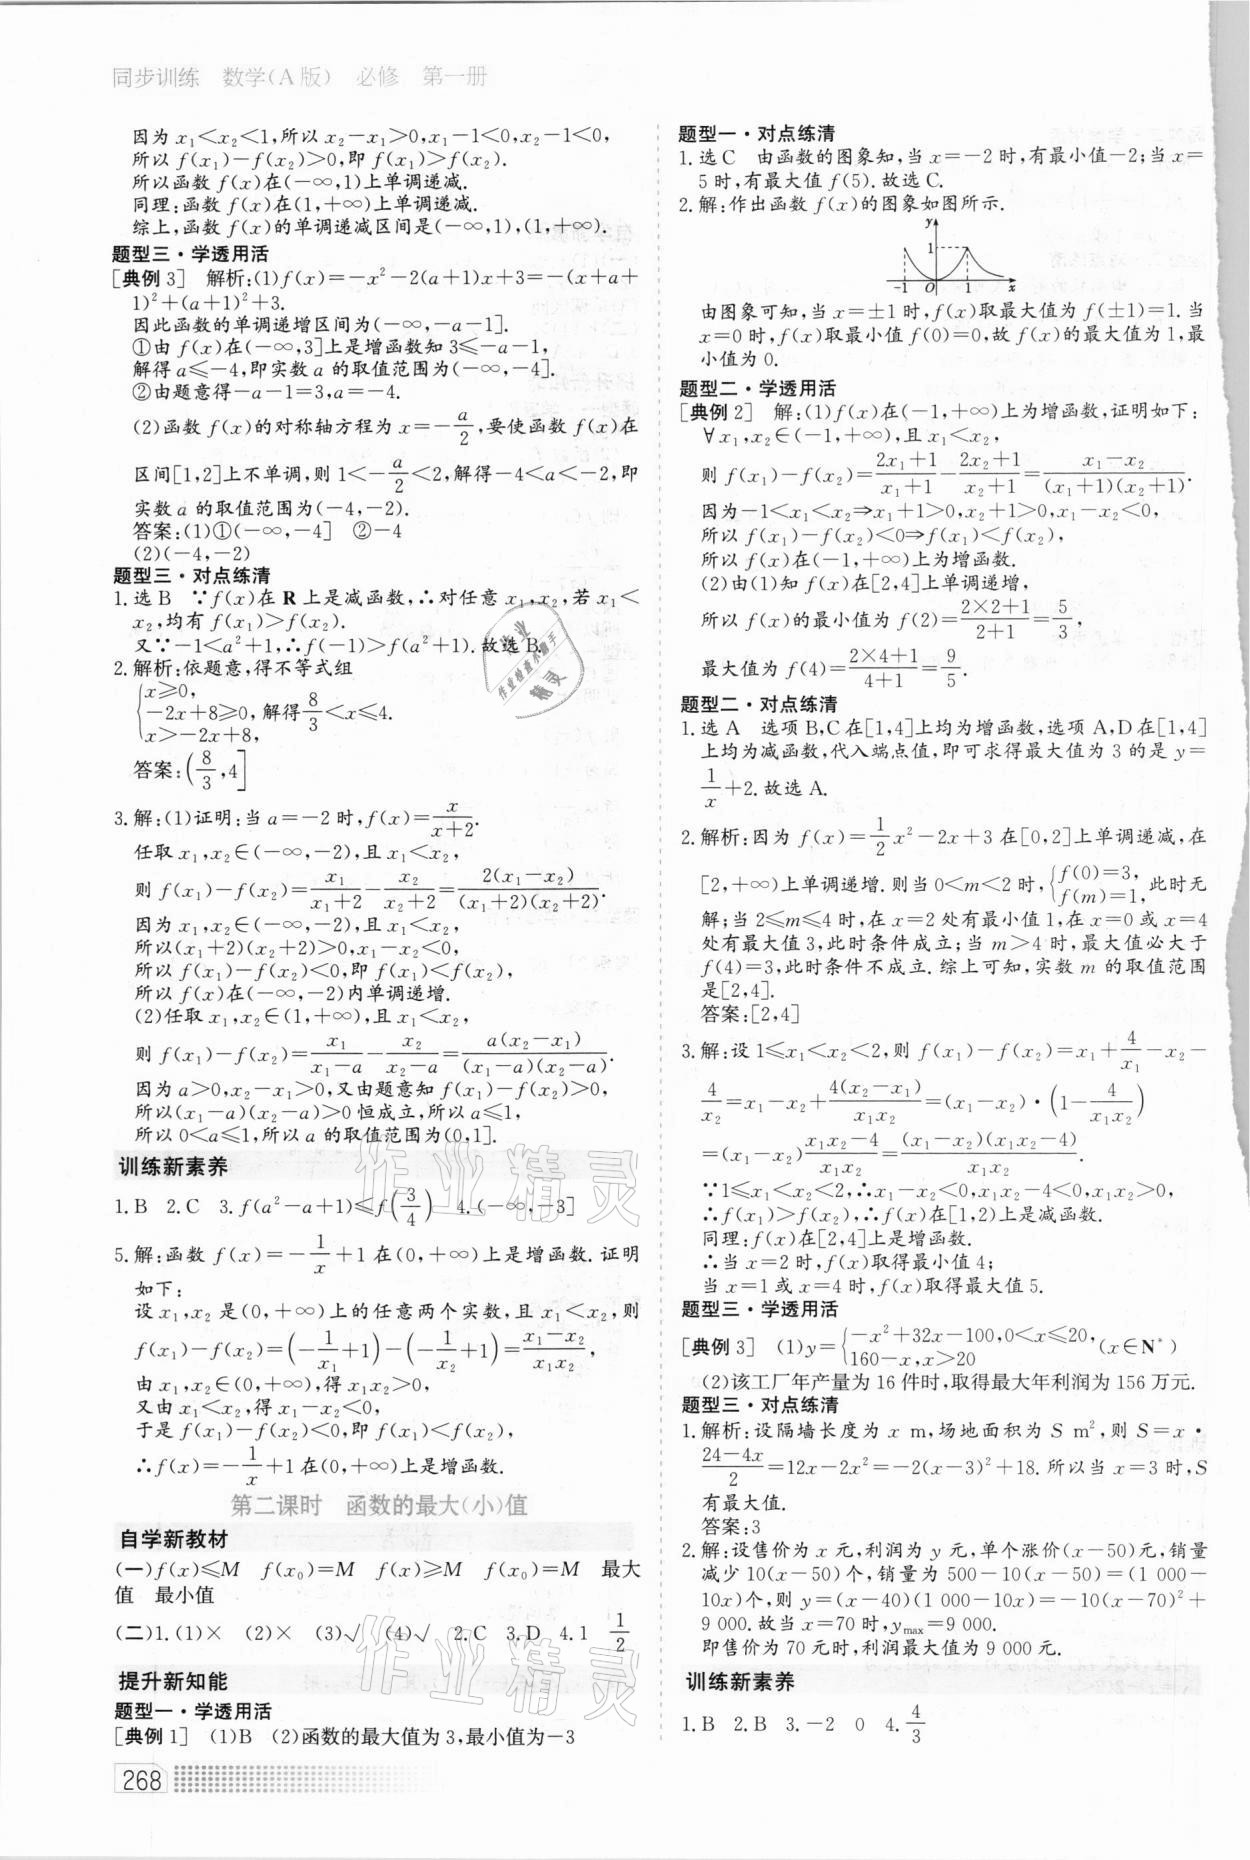 同步训练 数学(A版) 必修 第一册
因为 x₁<x₂<1,所以 x₂-x₁>0,x₁-1<0,x₂-1<0,
所以 f(x₁)-f(x₂)>0,即 f(x₁)>f(x₂).
所以函数 f(x)在(-∞,1)上单调递减.
同理:函数 f(x)在(1,+∞)上单调递减.
综上,函数 f(x)的单调递减区间是(-∞,1),(1,+∞).
题型三·学透用活
[典例3] 解析:(1)f(x)=-x²-2(a+1)x+3=-(x+a+
1)²+(a+1)²+3.
因此函数的单调递增区间为(-∞,-a-1].
①由 f(x)在(-∞,3]上是增函数知 3≤-a-1,
解得 a≤-4,即实数 a 的取值范围为(-∞,-4].
②由题意得-a-1=3,a=-4.
(2)函数 f(x)的对称轴方程为 x=-a/2,要使函数 f(x)在
区间[1,2]上不单调,则 1<-a/2<2,解得-4<a<-2,即
实数 a 的取值范围为(-4,-2).
答案:(1)①(-∞,-4] ②-4
(2)(-4,-2)
题型三·对点练清
1.选B ∵f(x)在 R 上是减函数,∴对任意 x₁,x₂,若 x₁<
x₂,均有 f(x₁)>f(x₂).
又∵-1<a²+1,∴f(-1)>f(a²+1).故选 B.
2.解析:依题意,得不等式组
{x≥0,
-2x+8≥0, 解得 8/3<x≤4.
x>-2x+8,
答案:(8/3,4]
3.解:(1)证明:当 a=-2 时,f(x)=x/(x+2).
任取 x₁,x₂∈(-∞,-2),且 x₁<x₂,
则 f(x₁)-f(x₂)=x₁/(x₁+2)-x₂/(x₂+2)=2(x₁-x₂)/((x₁+2)(x₂+2)).
因为 x₁,x₂∈(-∞,-2),且 x₁<x₂,
所以(x₁+2)(x₂+2)>0,x₁-x₂<0,
所以 f(x₁)-f(x₂)<0,即 f(x₁)<f(x₂),
所以 f(x)在(-∞,-2)内单调递增.
(2)任取 x₁,x₂∈(1,+∞),且 x₁<x₂,
则 f(x₁)-f(x₂)=x₁/(x₁-a)-x₂/(x₂-a)=a(x₂-x₁)/((x₁-a)(x₂-a)).
因为 a>0,x₂-x₁>0,又由题意知 f(x₁)-f(x₂)>0,
所以(x₁-a)(x₂-a)>0 恒成立,所以 a≤1,
所以 0<a≤1,所以 a 的取值范围为(0,1].
训练新素养
1.B 2.C 3.f(a²-a+1)≤f(3/4) 4.(-∞,-3]
5.解:函数 f(x)=-1/x+1 在(0,+∞)上是增函数.证明
如下:
设 x₁,x₂ 是(0,+∞)上的任意两个实数,且 x₁<x₂,则
f(x₁)-f(x₂)=(-1/x₁+1)-(-1/x₂+1)=(x₁-x₂)/(x₁x₂),
由 x₁,x₂∈(0,+∞),得 x₁x₂>0,
又由 x₁<x₂,得 x₁-x₂<0,
于是 f(x₁)-f(x₂)<0,即 f(x₁)<f(x₂),
∴f(x)=-1/x+1 在(0,+∞)上是增函数.
第二课时 函数的最大(小)值
自学新教材
(一)f(x)≤M f(x₀)=M f(x)≥M f(x₀)=M 最大
值 最小值
(二)1.(1)× (2)× (3)√ (4)√ 2.C 3.D 4.1 1/2
提升新知能
题型一·学透用活
[典例1] (1)B (2)函数的最大值为 3,最小值为-3
268
题型一·对点练清
1.选C 由函数的图象知,当 x=-2 时,有最小值-2;当 x=
5 时,有最大值 f(5).故选 C.
2.解:作出函数 f(x)的图象如图所示.
y
1
-1 O 1 x
由图象可知,当 x=±1 时,f(x)取最大值为 f(±1)=1.当
x=0 时,f(x)取最小值 f(0)=0,故 f(x)的最大值为 1,最
小值为 0.
题型二·学透用活
[典例2] 解:(1)f(x)在(-1,+∞)上为增函数,证明如下:
∀x₁,x₂∈(-1,+∞),且 x₁<x₂,
则 f(x₁)-f(x₂)=(2x₁+1)/(x₁+1)-(2x₂+1)/(x₂+1)=(x₁-x₂)/((x₁+1)(x₂+1)).
因为-1<x₁<x₂⇒x₁+1>0,x₂+1>0,x₁-x₂<0,
所以 f(x₁)-f(x₂)<0⇒f(x₁)<f(x₂),
所以 f(x)在(-1,+∞)上为增函数.
(2)由(1)知 f(x)在[2,4]上单调递增,
所以 f(x)的最小值为 f(2)=(2×2+1)/(2+1)=5/3,
最大值为 f(4)=(2×4+1)/(4+1)=9/5.
题型二·对点练清
1.选A 选项 B,C 在[1,4]上均为增函数,选项 A,D 在[1,4]
上均为减函数,代入端点值,即可求得最大值为 3 的是 y=
1/x+2.故选 A.
2.解析:因为 f(x)=1/2x²-2x+3 在[0,2]上单调递减,在
[2,+∞)上单调递增.则当 0<m<2 时,{f(0)=3, f(m)=1, 此时无
解;当 2≤m≤4 时,在 x=2 处有最小值 1,在 x=0 或 x=4
处有最大值 3,此时条件成立;当 m>4 时,最大值必大于
f(4)=3,此时条件不成立.综上可知,实数 m 的取值范围
是[2,4].
答案:[2,4]
3.解:设 1≤x₁<x₂<2,则 f(x₁)-f(x₂)=x₁+4/x₁-x₂-
4/x₂=x₁-x₂+4(x₂-x₁)/(x₁x₂)=(x₁-x₂)·(1-4/(x₁x₂))
=(x₁-x₂)(x₁x₂-4)/(x₁x₂)=(x₁-x₂)(x₁x₂-4)/(x₁x₂).
∵1≤x₁<x₂<2,∴x₁-x₂<0,x₁x₂-4<0,x₁x₂>0,
∴f(x₁)>f(x₂),∴f(x)在[1,2)上是减函数.
同理:f(x)在[2,4]上是增函数.
∴当 x=2 时,f(x)取得最小值 4;
当 x=1 或 x=4 时,f(x)取得最大值 5.
题型三·学透用活
[典例3] (1)y={-x²+32x-100,0<x≤20, 160-x,x>20 (x∈N*)
(2)该工厂年产量为 16 件时,取得最大年利润为 156 万元.
题型三·对点练清
1.解析:设隔墙长度为 x m,场地面积为 S m²,则 S=x·
(24-4x)/2=12x-2x²=-2(x-3)²+18.所以当 x=3 时,S
有最大值.
答案:3
2.解:设售价为 x 元,利润为 y 元,单个涨价(x-50)元,销量
减少 10(x-50)个,销量为 500-10(x-50)=(1 000-
10x)个,则 y=(x-40)(1 000-10x)=-10(x-70)²+
9 000.故当 x=70 时,yₘₐₓ=9 000.
即售价为 70 元时,利润最大值为 9 000 元.
训练新素养
1.B 2.B 3.-2 0 4.4/3
作业精灵
作业精灵